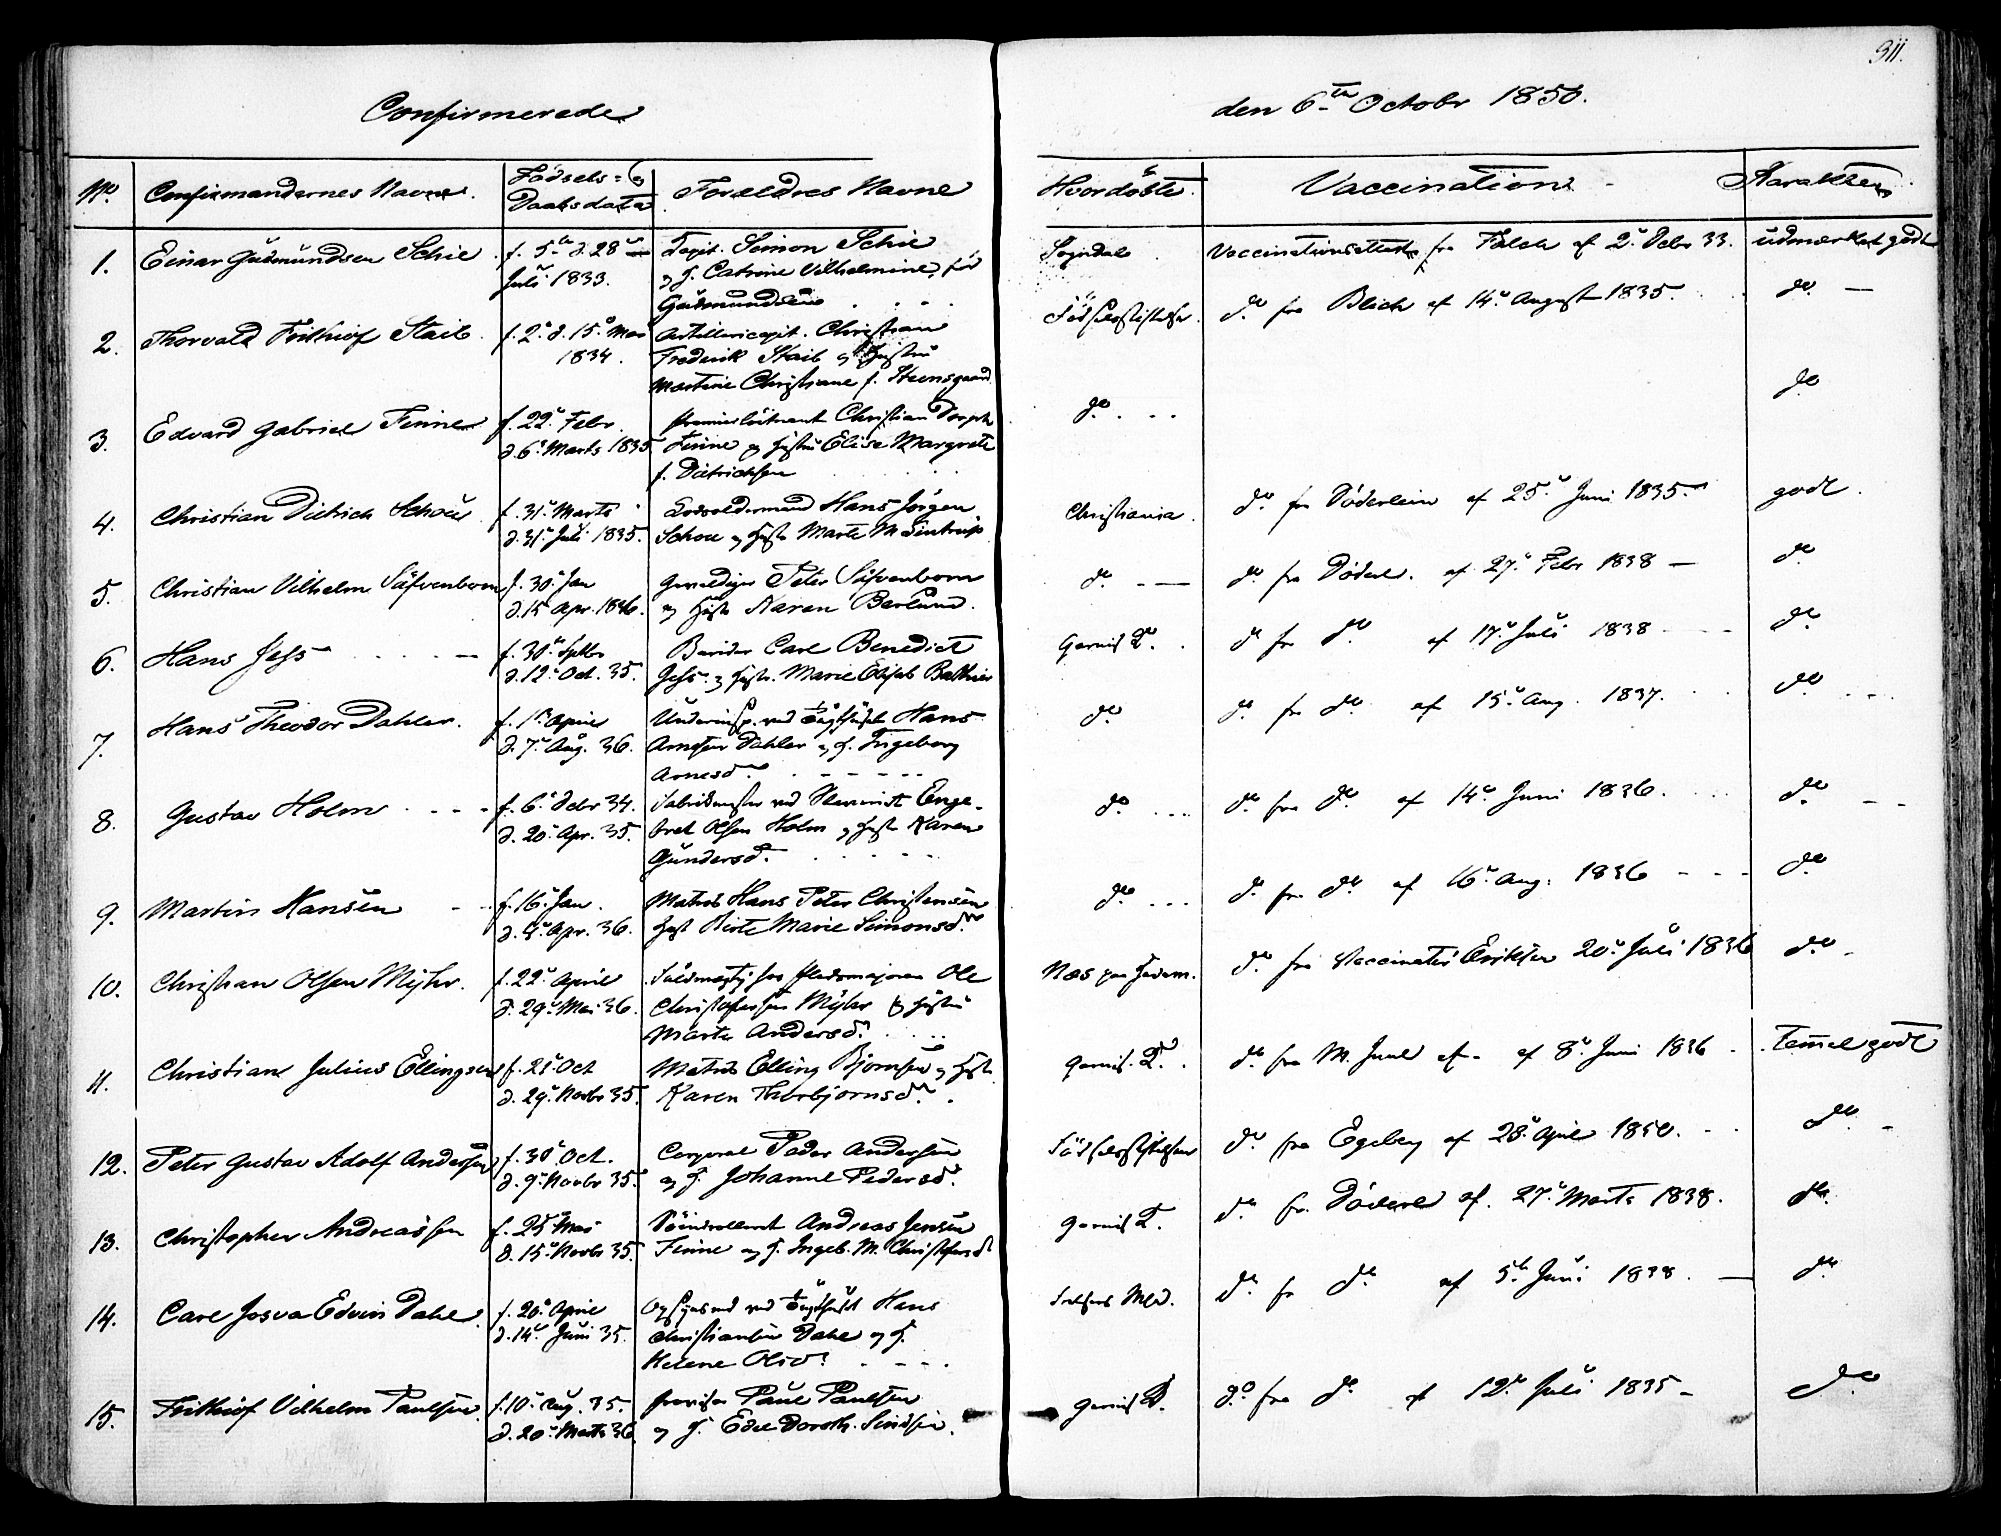 311.
Confirmerede
den 6te Octobr 1850.
No. Confirmandernes Navne. Födsels- og Daabsdata Forældres Navne Hvor döbte. Vaccination Karakteer
1. Einar Gudmundsen Schie f. 5te d. 28 Juli 1833. Capit. Simon Schie
og H. Catrine Vilhelmine föd
Gudmundsen
Sogndal Vaccinationsattest fra Falch af 2 Debr 33. udmærket godt
2. Thorvald Frithiof Staib. f. 2 d. 15 Mai 1834. Artellericapit. Christian
Frederik Staib og Hustru
Martine Christiane f. Steensgaard
Födselsstiftelsen do fra Blich af 14 August 1835. do
3. Edvard Gabriel Finne f. 22 Febr. d. 6 Marts 1835 Premierlöitnant Christian
Finne og Hustru Elise Margrete
f. Ditrichsen
do do
4. Christian Ditrich Schou f. 31 Marts d. 31 Juli 1835. Hans Jörgen
Schou og Hust. Marte M.
Christiania do fra Döderlein af 25 Juni 1835. godt.
5. Christian Vilhelm Säfvenbom f. 30 Jan d. 15 Apr. 1836. Gevaldiger Peter Säfvenbom
og Hust. Karen Berlund.
do do fra Döderl. af 27 Febr 1838 do
6. Hans Jess f. 30 Septbr d. 12 Oct. 35. Berider Carl Benedict
Jess og Hustr. Marie Elisab.
Garnis K. do fr do af 17 Juli 1838 do
7. Hans Theodor Dahler. f. 1 April d. 7 Aug. 36. Underinsp. ved Tugthuset Hans
Arnesen Dahler og H. Ingeborg
Arnesd.
do do fr do af 15 Aug. 1837. do
8. Gustav Holm f. 6 Debr 34. d. 20 Apr. 35. Fabrikmester ved Enge-
bret Olsen Holm og Hust Karen
Gundersd.
do do fra do af 14 Juni 1836. do
9. Martin Hansen f. 16 Jan. d. 4 Apr. 36. Matros Hans Peter Christensen
Hust Birte Marie Simonsd.
do do fra do af 16 Aug. 1836 do
10. Christian Olsen Myhr. f. 22 April d. 29 Mai 36. hos Pladsmajoren Ole
Christophersen Myhr og Hustru
Marte Andersd.
Næs paa Hedem. do fra Vaccinatör Eriksen 20 Juli 1836 do
11. Christian Julius Ellingsen f. 21 Oct d. 29 Novbr 35. Matros Elling Bjornsen og Hust.
Karen Thorbjornsd.
Garnis. K. do fra M. Juul af af 8 Juni 1836 temmel godt
12. Peter Gustav Adolf Andersen f. 30 Oct. d. 9 Novbr 35. Corporal Peder Andersen
og H. Johanne Pedersd.
Födselsstiftelsen do fra Egeberg af 28 April 1850. do
13. Christopher Andreassen f. 25 Mai d. 15 Novbr 35. Andreas Jensen
Finne og H. Ingeb. M. Christophersd
Garnis K. do fr. Döderl af 27 Marts 1838. do
14. Carl Josva Edvin Dahl. f. 20 April d. 14 Juni 35. Opsynsmd ved Tugthuset Hans
Christiansen Dahl og H.
Helene Olsd.
do fr do af 5te Juni 1838. do
15. Frithiof Vilhelm Paulsen f. 10 Aug. 35. d. 20 Marts 36. Provisor Paul Paulsen
og H. Edel Doroth.
Garnis K. do fra do af 12 Juli 1835 do